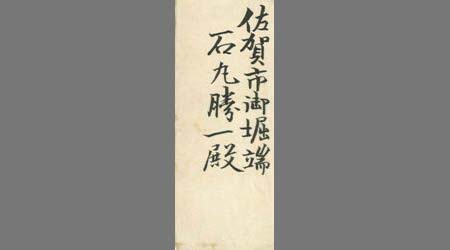 佐賀市御堀端
石丸勝一殿